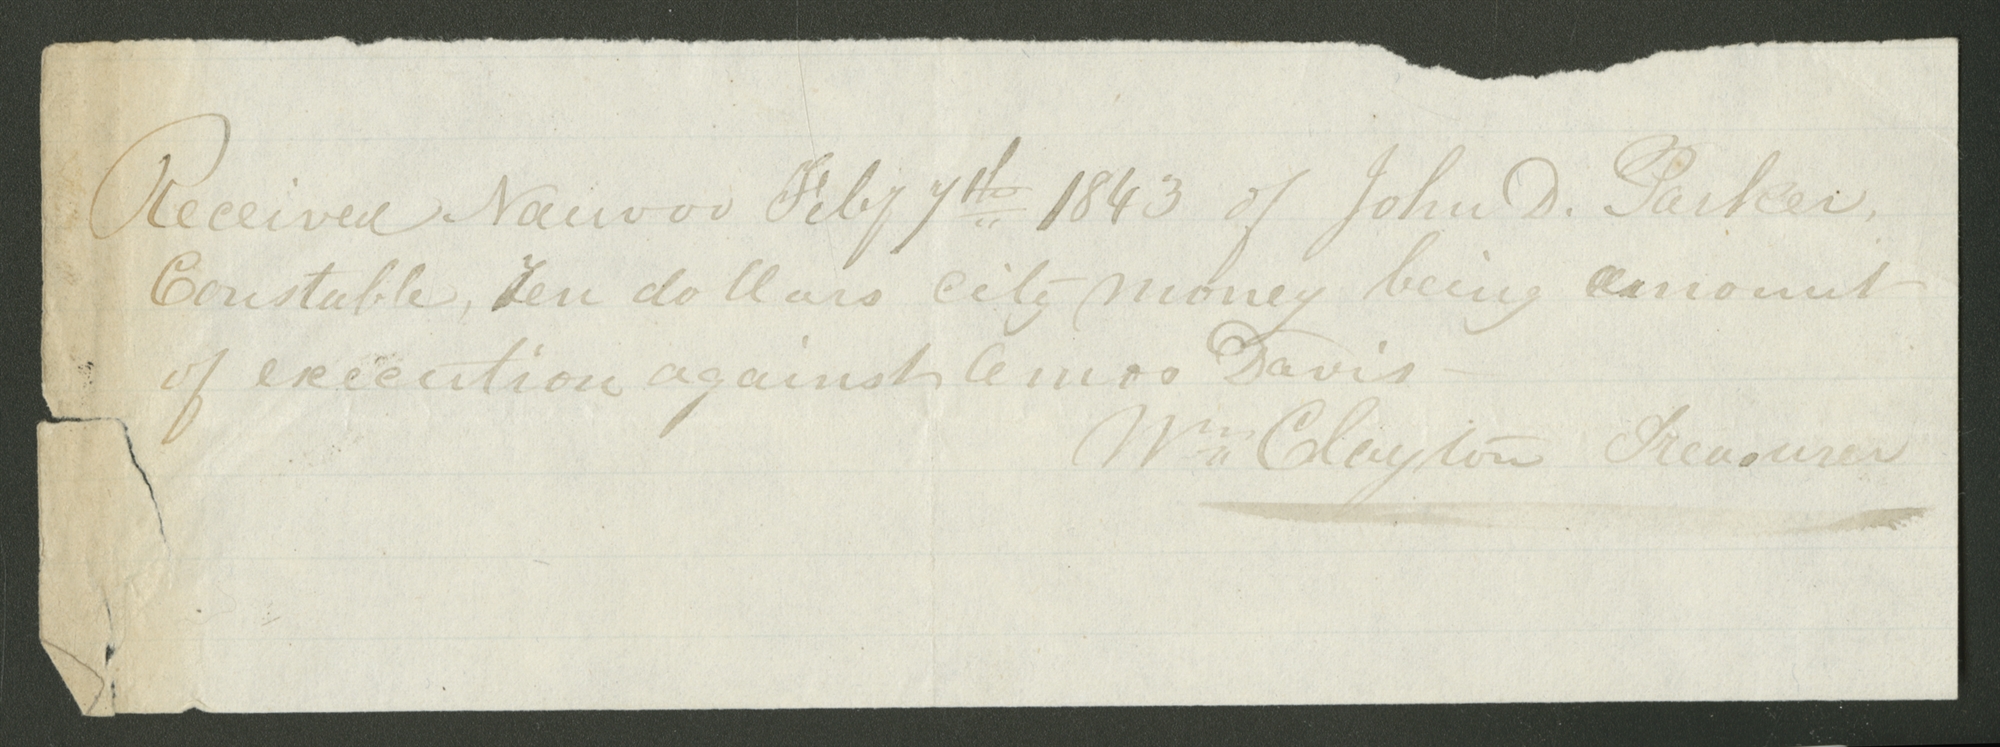 Received Nauvoo Feby 7th 1843 of John D. Parker,
Constable, Ten dollars city money being amount
of execution against Amos Davis—
Wm Clayton Treasurer